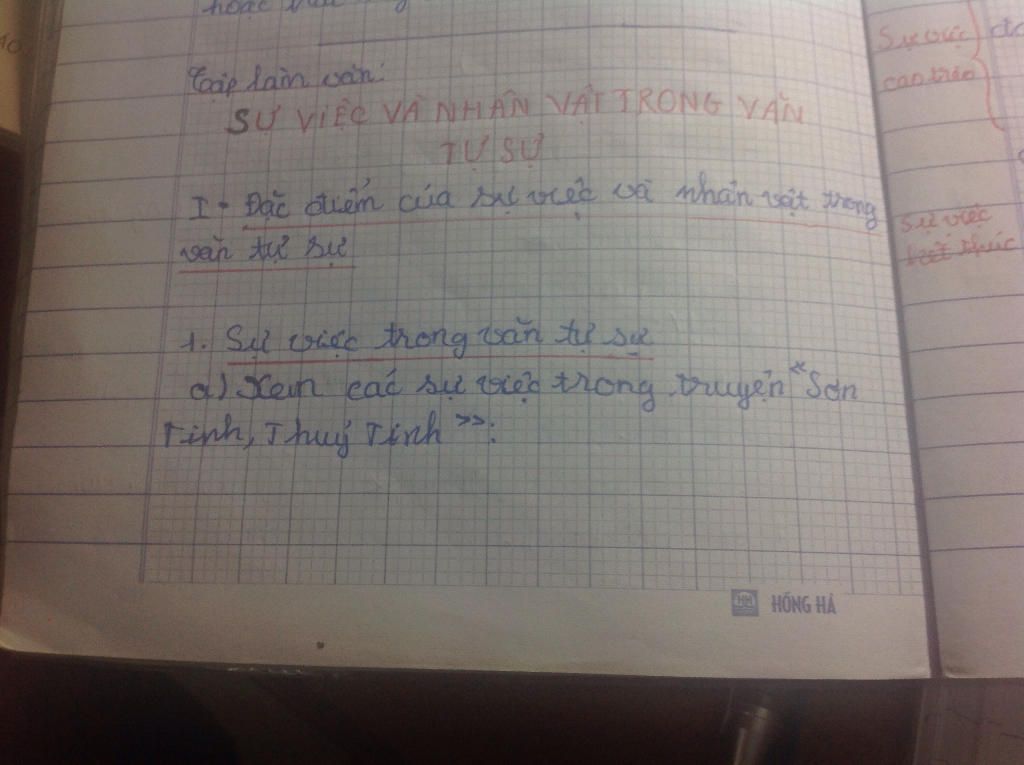 hoặc
Tập làm văn:
SỰ VIỆC VÀ NHÂN VẬT TRONG VĂN
TỰ SỰ
I - Đặc điểm của sự việc và nhân vật trong
văn tự sự
1. Sự việc trong văn tự sự
a) Xem các sự việc trong truyện "Sơn
Tinh, Thuỷ Tinh >>:
HH HỒNG HÀ
Sự việc
cao trào
Sự việc
kết thúc